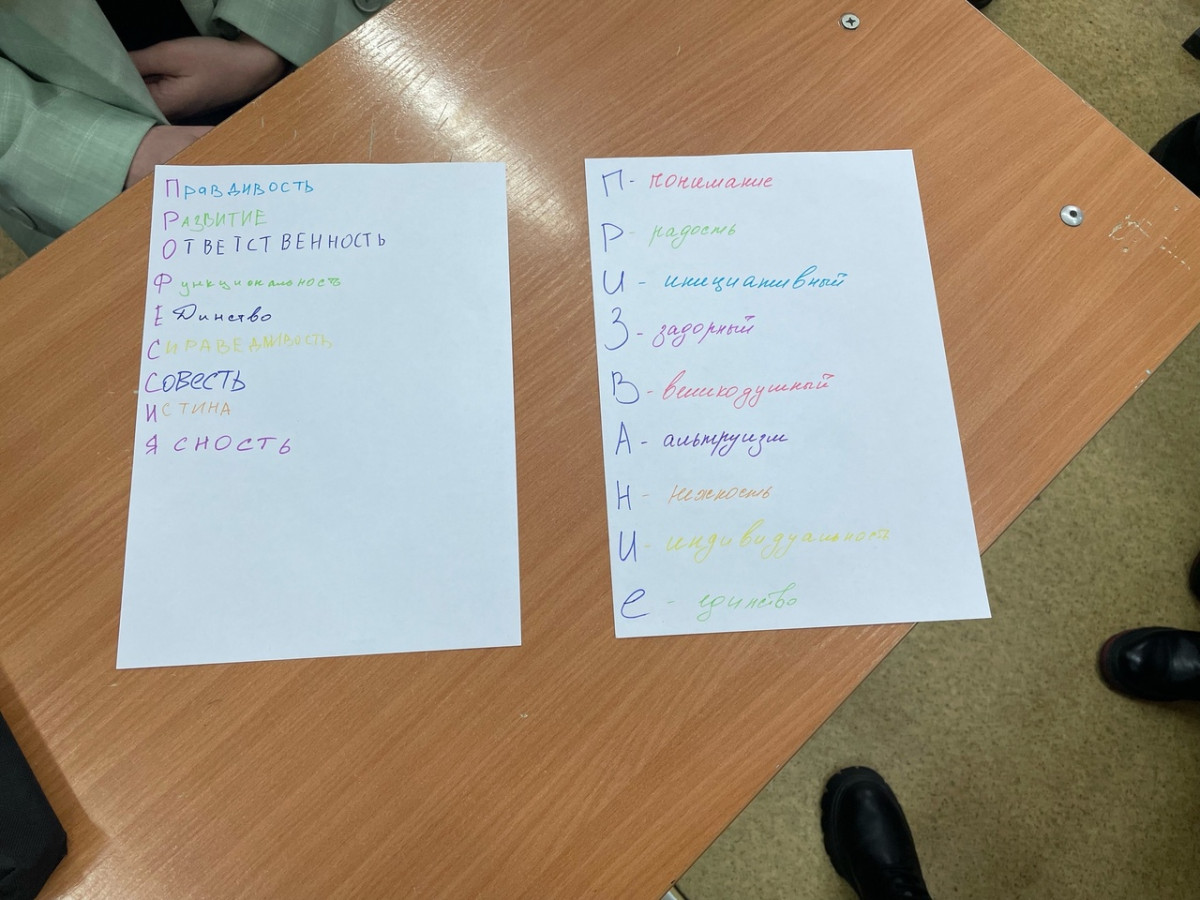 Правдивость
РАЗВИТИЕ
ОТВЕТСТВЕННОСТЬ
Функциональность
ЕДинство
СПРАВЕДЛИВОСТЬ
СОВЕСТЬ
ИСТИНА
ЯСНОСТЬ
П- понимание
Р- радость
И - инициативный
З - задорный
В - великодушный
А - альтруизм
Н - нежность
И - индивидуальность
е - единство